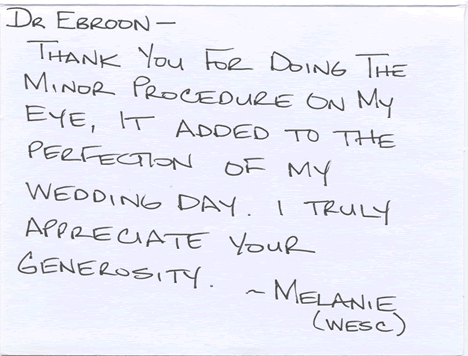 DR EBROON—
THANK YOU FOR DOING THE
MINOR PROCEDURE ON MY
EYE, IT ADDED TO THE
PERFECTION OF MY
WEDDING DAY. I TRULY
APPRECIATE YOUR
GENEROSITY. ~ MELANIE
(WESC)